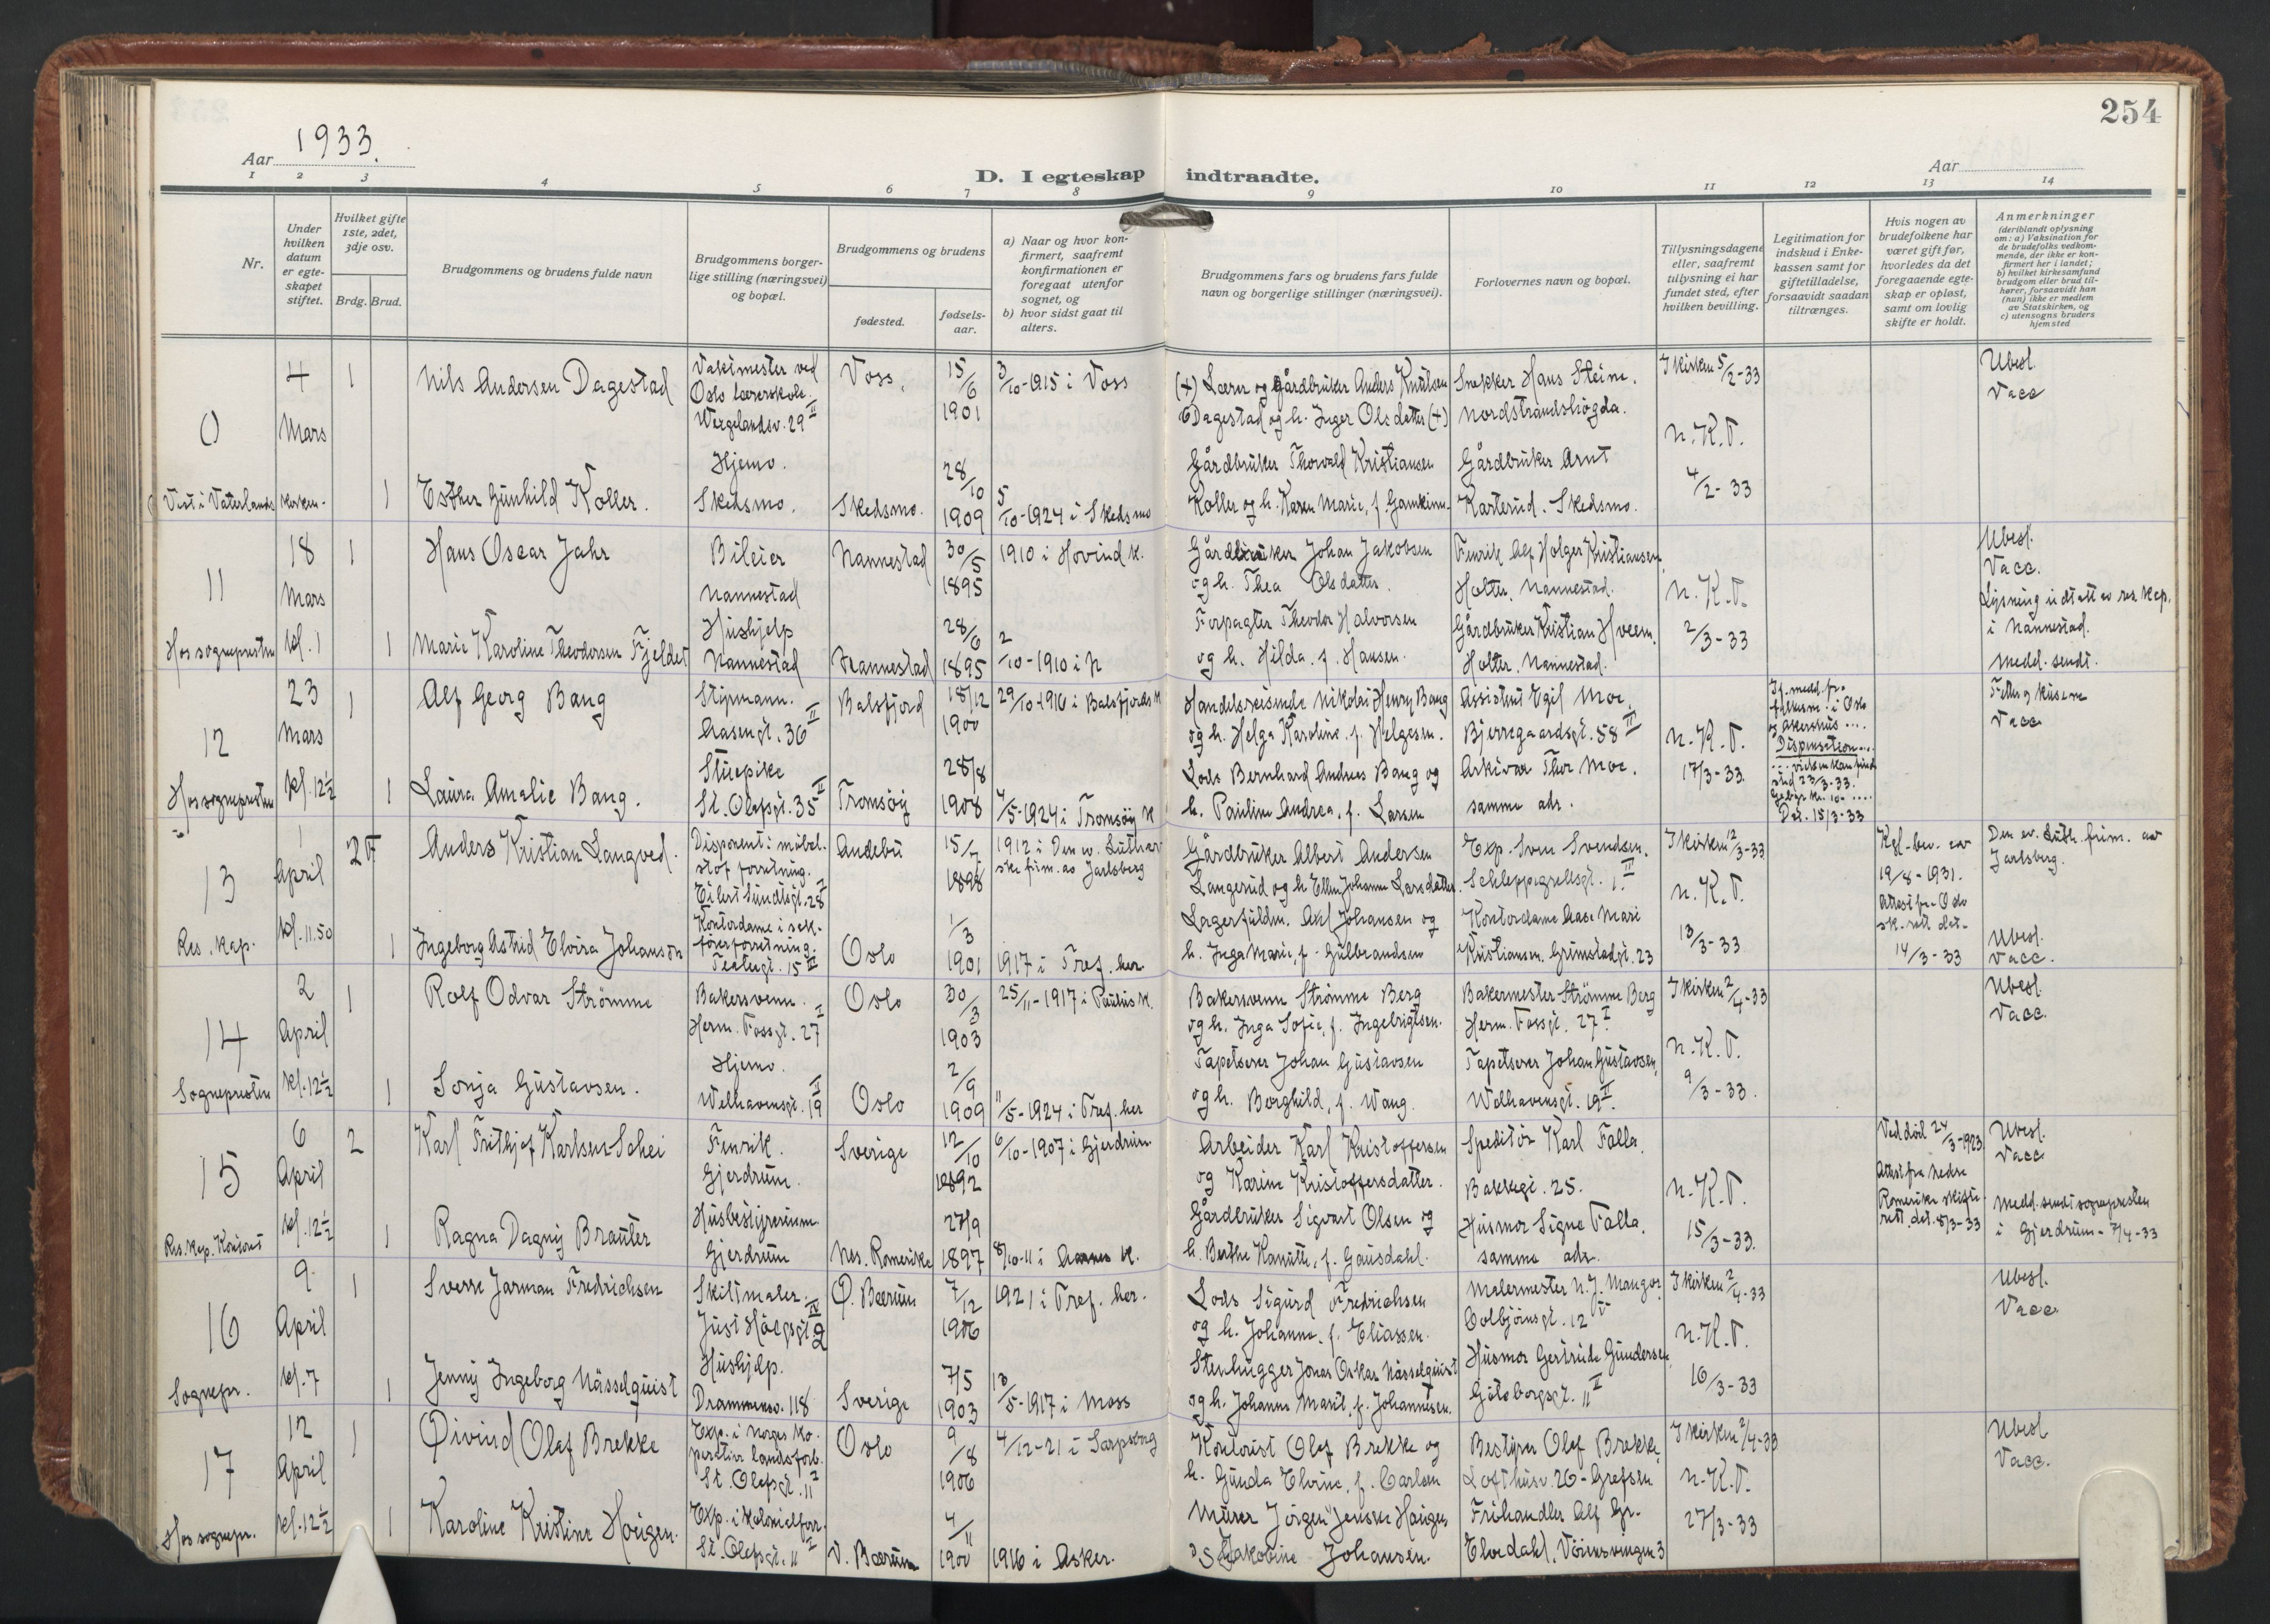 254
Aar 1933.
Aar
D. I egteskap indtraadte.
1 2 3 4 5 6 7 8 9 10 11 12 13 14
Nr.
Under hvilken datum er egteskapet stiftet.
Hvilket gifte 1ste, 2det, 3dje osv.
Brdg. Brud.
Brudgommens og brudens fulde navn
Brudgommens borgerlige stilling (næringsvei) og bopæl.
Brudgommens og brudens
fødested.
fødselsaar.
a) Naar og hvor konfirmert, saafremt konfirmationen er foregaat utenfor sognet, og
b) hvor sidst gaat til alters.
Brudgommens fars og brudens fars fulde navn og borgerlige stillinger (næringsvei).
Forlovernes navn og bopæl.
Tillysningsdagene eller, saafremt tillysning ei har fundet sted, efter hvilken bevilling.
Legitimation for indskud i Enkekassen samt for giftetilladelse, forsaavidt saadan tiltrænges.
Hvis nogen av brudefolkene har været gift før, hvorledes da det foregaaende egteskap er opløst, samt om lovlig skifte er holdt.
Anmerkninger
(deriblandt oplysning om: a) Vaksination for de brudefolks vedkommende, der ikke er konfirmert her i landet;
b) hvilket kirkesamfund brudgom eller brud tilhører, forsaavidt han (hun) ikke er medlem av Statskirken, og
c) utensogns bruders hjemsted
4 Mars
1 Nils Andersen Dagestad
Vaktmester ved Oslo lærerskole. Wergelandsv. 29 II
Voss.
15/6 1901
3/10-1915 i Voss
(+) Lærer og gårdbruker Anders Knutsen Dagestad og h. Inger Olsdatter (+)
Snekker Hans Steine. Nordstrandshøgda.
I kirken 5/2-33 N.K.T. 4/2-33
Ubesl. Vacc
Viet i Vaterlands kirken-
1 Esther Gunhild Koller.
Hjemv. Skedsmo.
Skedsmo.
28/10 1909
5/10-1924 i Skedsmo
Gårdbruker Thorvald Kristiansen Koller og h. Karen Marie,
Gårdbruker Arnt Karterud. Skedsmo.
11
18 Mars kl. 1
Hos sognepresten
1 Hans Oscar Jahr
Bileier Nannestad
Nannestad
30/5 1895
1910 i Hovind k.
Gårdbruker Johan Jakobsen og h. Thea Olsdatter.
Fenrik Alf Holger Kristiansen, Holter. Nannestad.
N.K.T. 2/3-33
Ubesl. Vacc.
Lysning utdtatt av res. kap. i Nannestad. Medd. sendt.
1 Marie Karoline Theodorsen Fjeldet
Hushjelp Nannestad
Nannestad
28/6 1895
2/10-1910 i N
Forpagter Theodor Halvorsen og h. Hilda. f. Hansen.
Gårdbruker Kristian Hveem. Holter. Nannestad.
12
23 Mars kl. 12½
Hos sognepresten
1 Alf Georg Bang
Styrmann. Aasengt. 36 II
Balsfjord
18/12 1900
29/10-1916 i Balsfjords k
Handelsreisende Nikolai Henry Bang og h. Helga Karoline. f. Helgesen.
Assistent Egil Moe. Bjerregaardsgt. 58 III
N.K.T. 17/3-33.
Dispensation
23/3-33.
Dat. 15/3-33
Fetter og kusine Vacc
1 Laura Amalie Bang.
Stuepike St. Olafsgt. 35 II
Tromsøy
28/8 1908
4/5-1924 i Tromsøy k
Lods Bernhard Andreas Bang og h. Pauline Andrea, f. Larsen
Arkivar Thor Moe. samme adr.
13
1 April kl. 11.50
Res. kap.
2 F Anders Kristian Langved.
Disponent i møbelstof forretning. Eilert Sundtsgt. 28
Andebu
15/7 1898
1912 i Den ev. Lutherske frim. av Jarlsberg
Gårdbruker Albert Andersen Langerud og h Ellen Johanne Larsdatter.
Exp. Sven Svendsen. Schleppegrellsgt. 1. III
I kirken 12/3-33 N.K.T. 13/3-33
Kgl-bev. av 19/8-1931. Attest fra Oslo sk. rett dat- 14/3-33
Den ev. Luth. frim. av Jarlsberg.
1 Ingeborg Astrid Elvira Johanson
Kontordame i sakførerforretning. Toftesgt. 15 III
Oslo
1/3 1901
1917 i Tref. her.
Lagerfuldm. Axl Johansen og h. Inga Marie, f. Gulbrandsen
Kontordame Aase Mari Kristiansen. Grimstadgt. 23
Ubesl. Vacc.
14
2 April kl. 12½
Sognepresten
1 Rolf Odvar Strömme
Bakersvenn. Herm. Fossgt. 27 I
Oslo
30/3 1903
25/11-1917 i Paulus k.
Bakersvenn Strömme Berg og h. Inga Sofie, f. Ingebrigtsen.
Bakermester Strömme Berg Herm. Fossgt. 27 I
I kirken 2/4-33 N.K.T. 9/3-33.
Ubesl. Vacc.
1 Sonja Gustavsen.
Hjemv. Welhavensgt. 19 II
Oslo
2/9 1909
11/5-1924 i Tref. her
Tapetserer Johan Gustavsen og h. Borghild, f. Wang.
Tapetserer Johan Gustavsen, Welhavensgt. 19 II.
15
6 April kl. 12½
Res. kap. Konsont
2 Karl Frithjof Karlsen-Schei
Fenrik. Gjerdrum.
Sverige
12/10 1892
6/10-1907 i Gjerdrum
Arbeider Karl Kristoffersen og Karine Kristoffersdatter.
Speditør Karl Falla. Bakkegt. 25.
N.K.T. 15/3-33.
Ved död 24/3-1923. Attest fra Nedre Romerike skifterett, dat. 8/3-33
Ubesl. Vacc
Medd. sendt sognepresten i Gjerdrum- 7/4-33
1 Ragna Dagny Brauter
Husbestyrerinne Gjerdrum
Nes. Romerike
27/9 1897
8/10-11 i Aarnes k.
Gårdbruker Sigvart Olsen og h. Berthe Kanutte, f. Gausdahl.
Husmor Signe Falla. samme adr.
16
9 April kl. 7
Sognepr.
1 Sverre Jarman Fredrichsen
Skiltmaler. Just Höegsgt 2 IV
Ø. Bærum
7/12 1906
1921 i Tref. her.
Lods Sigurd Fredrichsen og h. Johanne, f. Eliassen.
Malermester N. J. Mangor Colbjörnsgt. 12 V
I kirken 2/4-33 N.K.T. 16/3-33
Ubesl. Vacc
1 Jenny Ingeborg Nässelquist
Hushjelp. Drammensv. 118
Sverige
7/5 1903
13/5-1917 i Moss
Stenhugger Jonas Oskar Nässelquist og h. Johanne Marit, f. Johannesen.
Husmor Gertrude Gundersen, Göteborggt. 11 II
17
12 April kl. 12½
Hos sognepr.
1 Øivind Olaf Brekke
Exp. i Norges Kooperative landsforb. St. Olafsgt. 11 I
Oslo
9/8 1906
4/12-21 i Sarpsborg
Kontorist Olaf Brekke og h. Gunda Elvine, f. Carlsen
Bestyrer Olaf Brekke, Lofthusv. 26-Grefsen
I kirken 2/4-33 N.K.T. 27/3-33
Ubesl Vacc.
1 Karoline Kristine Haugen.
Exp. i kolonialforr. St. Olafsgt. 11 I
V. Bærum
4/11 1900
1916 i Asker.
Murer Jörgen Jensen Haugen og Jakobine Johansen.
Fruhandler Alf Gr. Elvedahl, Vöiensvingen 3